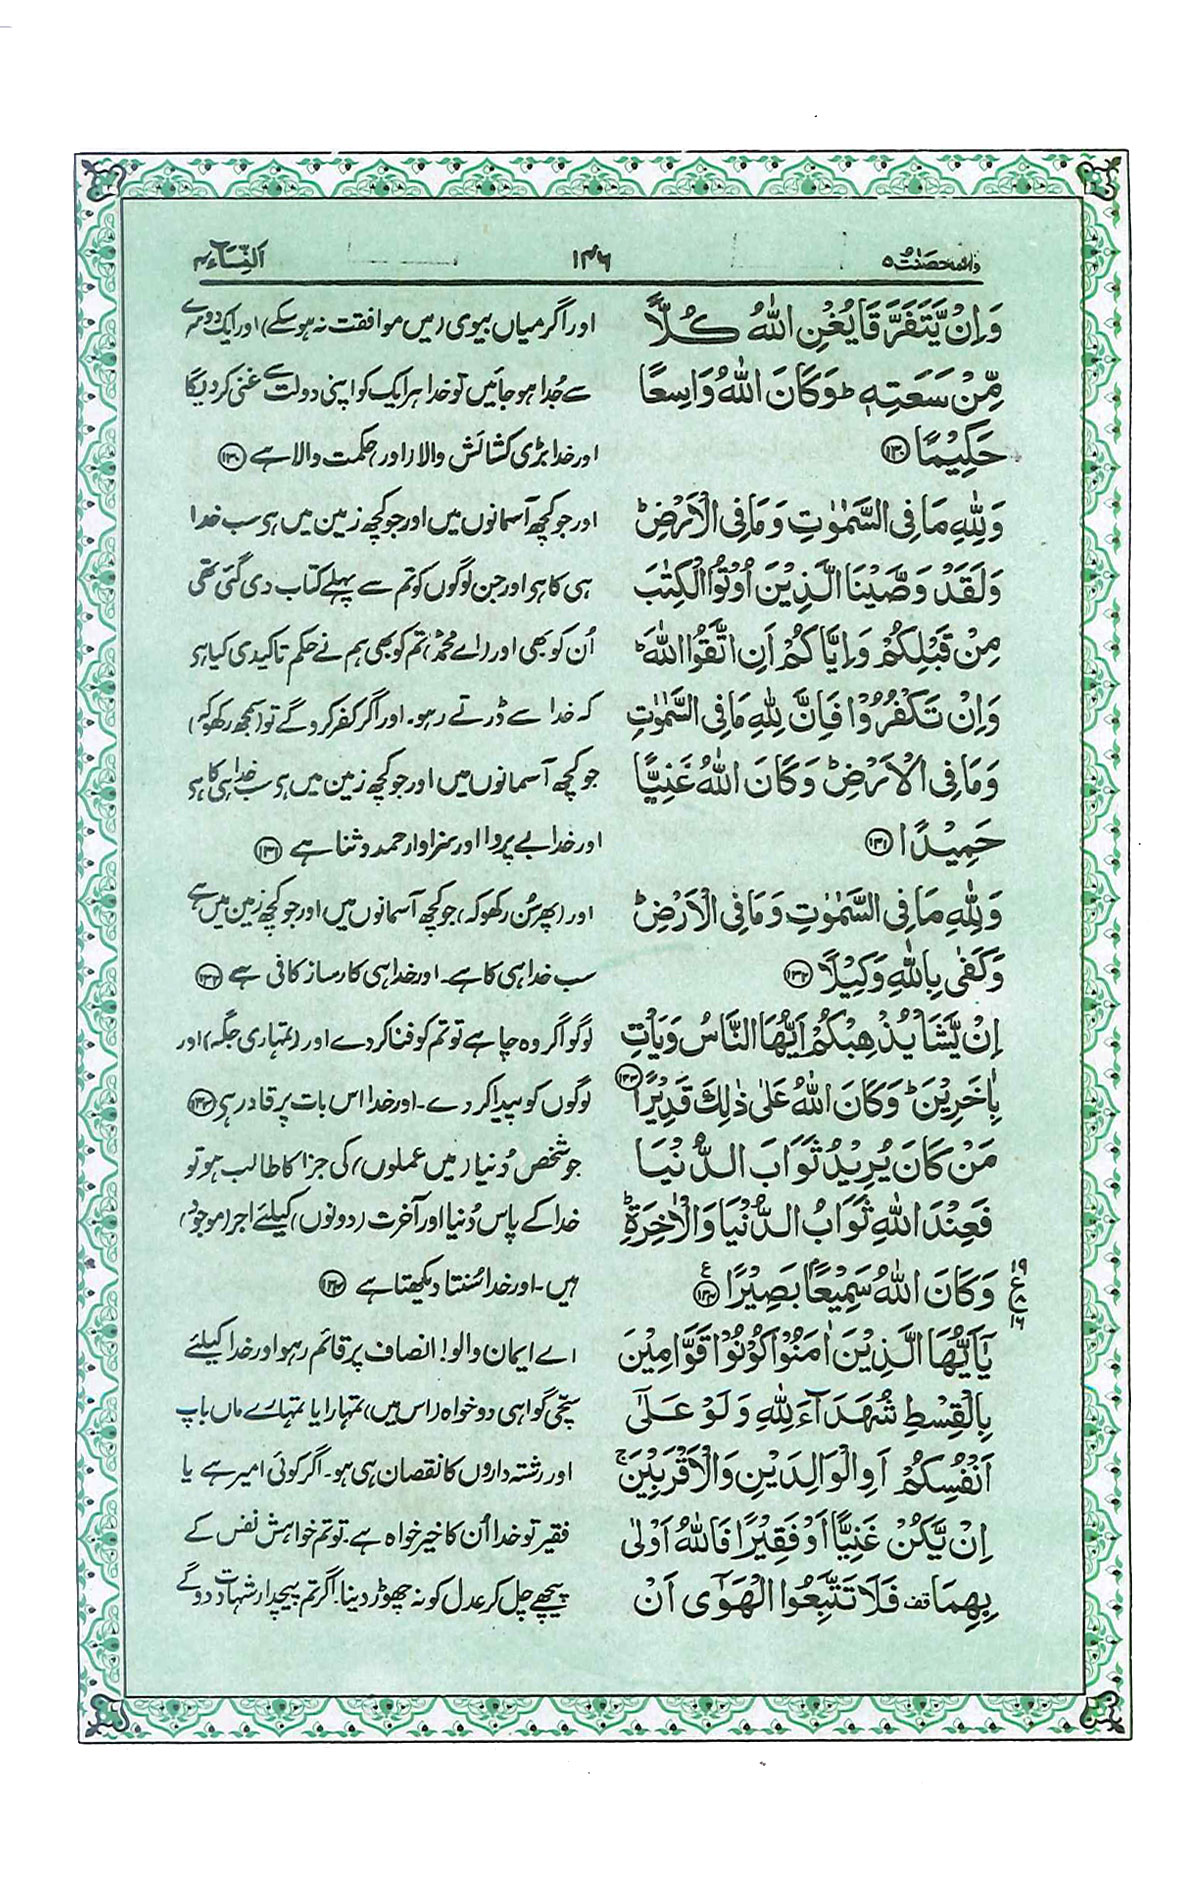 والمحصنٰت ۵
۱۴۶
النِّسَآء ۴
وَاِنْ يَّتَفَرَّقَا يُغْنِ اللّٰهُ كُلًّا
مِّنْ سَعَتِهٖ ؕ وَكَانَ اللّٰهُ وَاسِعًا
حَكِيْمًا ۝۱۳۰
وَلِلّٰهِ مَا فِى السَّمٰوٰتِ وَمَا فِى الْاَرْضِ ؕ
وَلَقَدْ وَصَّيْنَا الَّذِيْنَ اُوْتُوا الْكِتٰبَ
مِنْ قَبْلِكُمْ وَاِيَّاكُمْ اَنِ اتَّقُوا اللّٰهَ ؕ
وَاِنْ تَكْفُرُوْا فَاِنَّ لِلّٰهِ مَا فِى السَّمٰوٰتِ
وَمَا فِى الْاَرْضِ ؕ وَكَانَ اللّٰهُ غَنِيًّا
حَمِيْدًا ۝۱۳۱
وَلِلّٰهِ مَا فِى السَّمٰوٰتِ وَمَا فِى الْاَرْضِ ؕ
وَكَفٰى بِاللّٰهِ وَكِيْلًا ۝۱۳۲
اِنْ يَّشَاْ يُذْهِبْكُمْ اَيُّهَا النَّاسُ وَيَاْتِ
بِاٰخَرِيْنَ ؕ وَكَانَ اللّٰهُ عَلٰى ذٰلِكَ قَدِيْرًا ۝۱۳۳
مَنْ كَانَ يُرِيْدُ ثَوَابَ الدُّنْيَا
فَعِنْدَ اللّٰهِ ثَوَابُ الدُّنْيَا وَالْاٰخِرَةِ ؕ
وَكَانَ اللّٰهُ سَمِيْعًۢا بَصِيْرًا ۝۱۳۴ ع
۱۹
ع ۸
۱۶
يٰۤاَيُّهَا الَّذِيْنَ اٰمَنُوْا كُوْنُوْا قَوّٰمِيْنَ
بِالْقِسْطِ شُهَدَآءَ لِلّٰهِ وَلَوْ عَلٰٓى
اَنْفُسِكُمْ اَوِ الْوَالِدَيْنِ وَالْاَقْرَبِيْنَ ۚ
اِنْ يَّكُنْ غَنِيًّا اَوْ فَقِيْرًا فَاللّٰهُ اَوْلٰى
بِهِمَا قف فَلَا تَتَّبِعُوا الْهَوٰٓى اَنْ
اور اگر میاں بیوی (میں موافقت نہ ہو سکے) اور ایک دوسرے
سے جُدا ہو جائیں تو خدا ہر ایک کو اپنی دولت سے غنی کر دیگا
اور خدا بڑی کشائش والا (اور) حکمت والا ہے ۝۱۳۰
اور جو کچھ آسمانوں میں اور جو کچھ زمین میں ہو سب خدا
ہی کا ہو اور جن لوگوں کو تم سے پہلے کتاب دی گئی تھی
اُن کو بھی اور (اے محمدؐ) تم کو بھی ہم نے حکم تاکیدی کیا ہو
کہ خدا سے ڈرتے رہو۔ اور اگر کفر کرو گے تو (سمجھ رکھو کہ)
جو کچھ آسمانوں میں اور جو کچھ زمین میں ہو سب خدا ہی کا ہو
اور خدا بے پروا اور سزاوار حمد و ثنا ہے ۝۱۳۱
اور (پھر سُن رکھو کہ) جو کچھ آسمانوں میں اور جو کچھ زمین میں ہے
سب خدا ہی کا ہے۔ اور خدا ہی کارساز کافی ہے ۝۱۳۲
لوگو اگر وہ چاہے تو تم کو فنا کر دے اور (تمہاری جگہ) اور
لوگوں کو پیدا کر دے۔ اور خدا اس بات پر قادر ہی ۝۱۳۳
جو شخص دُنیا (میں عملوں) کی جزا کا طالب ہو تو
خدا کے پاس دُنیا اور آخرت (دونوں) کیلئے اجر (موجود)
ہیں۔ اور خدا سُنتا دیکھتا ہے ۝۱۳۴
اے ایمان والو! انصاف پر قائم رہو اور خدا کیلئے
سچی گواہی دو خواہ (اس میں) تمہارا یا تمہارے ماں باپ
اور رشتہ داروں کا نقصان ہی ہو۔ اگر کوئی امیر ہے یا
فقیر تو خدا اُن کا خیر خواہ ہے۔ تو تم خواہش نفس کے
پیچھے چل کر عدل کو نہ چھوڑ دینا! اگر تم پیچدار شہادت دو گے